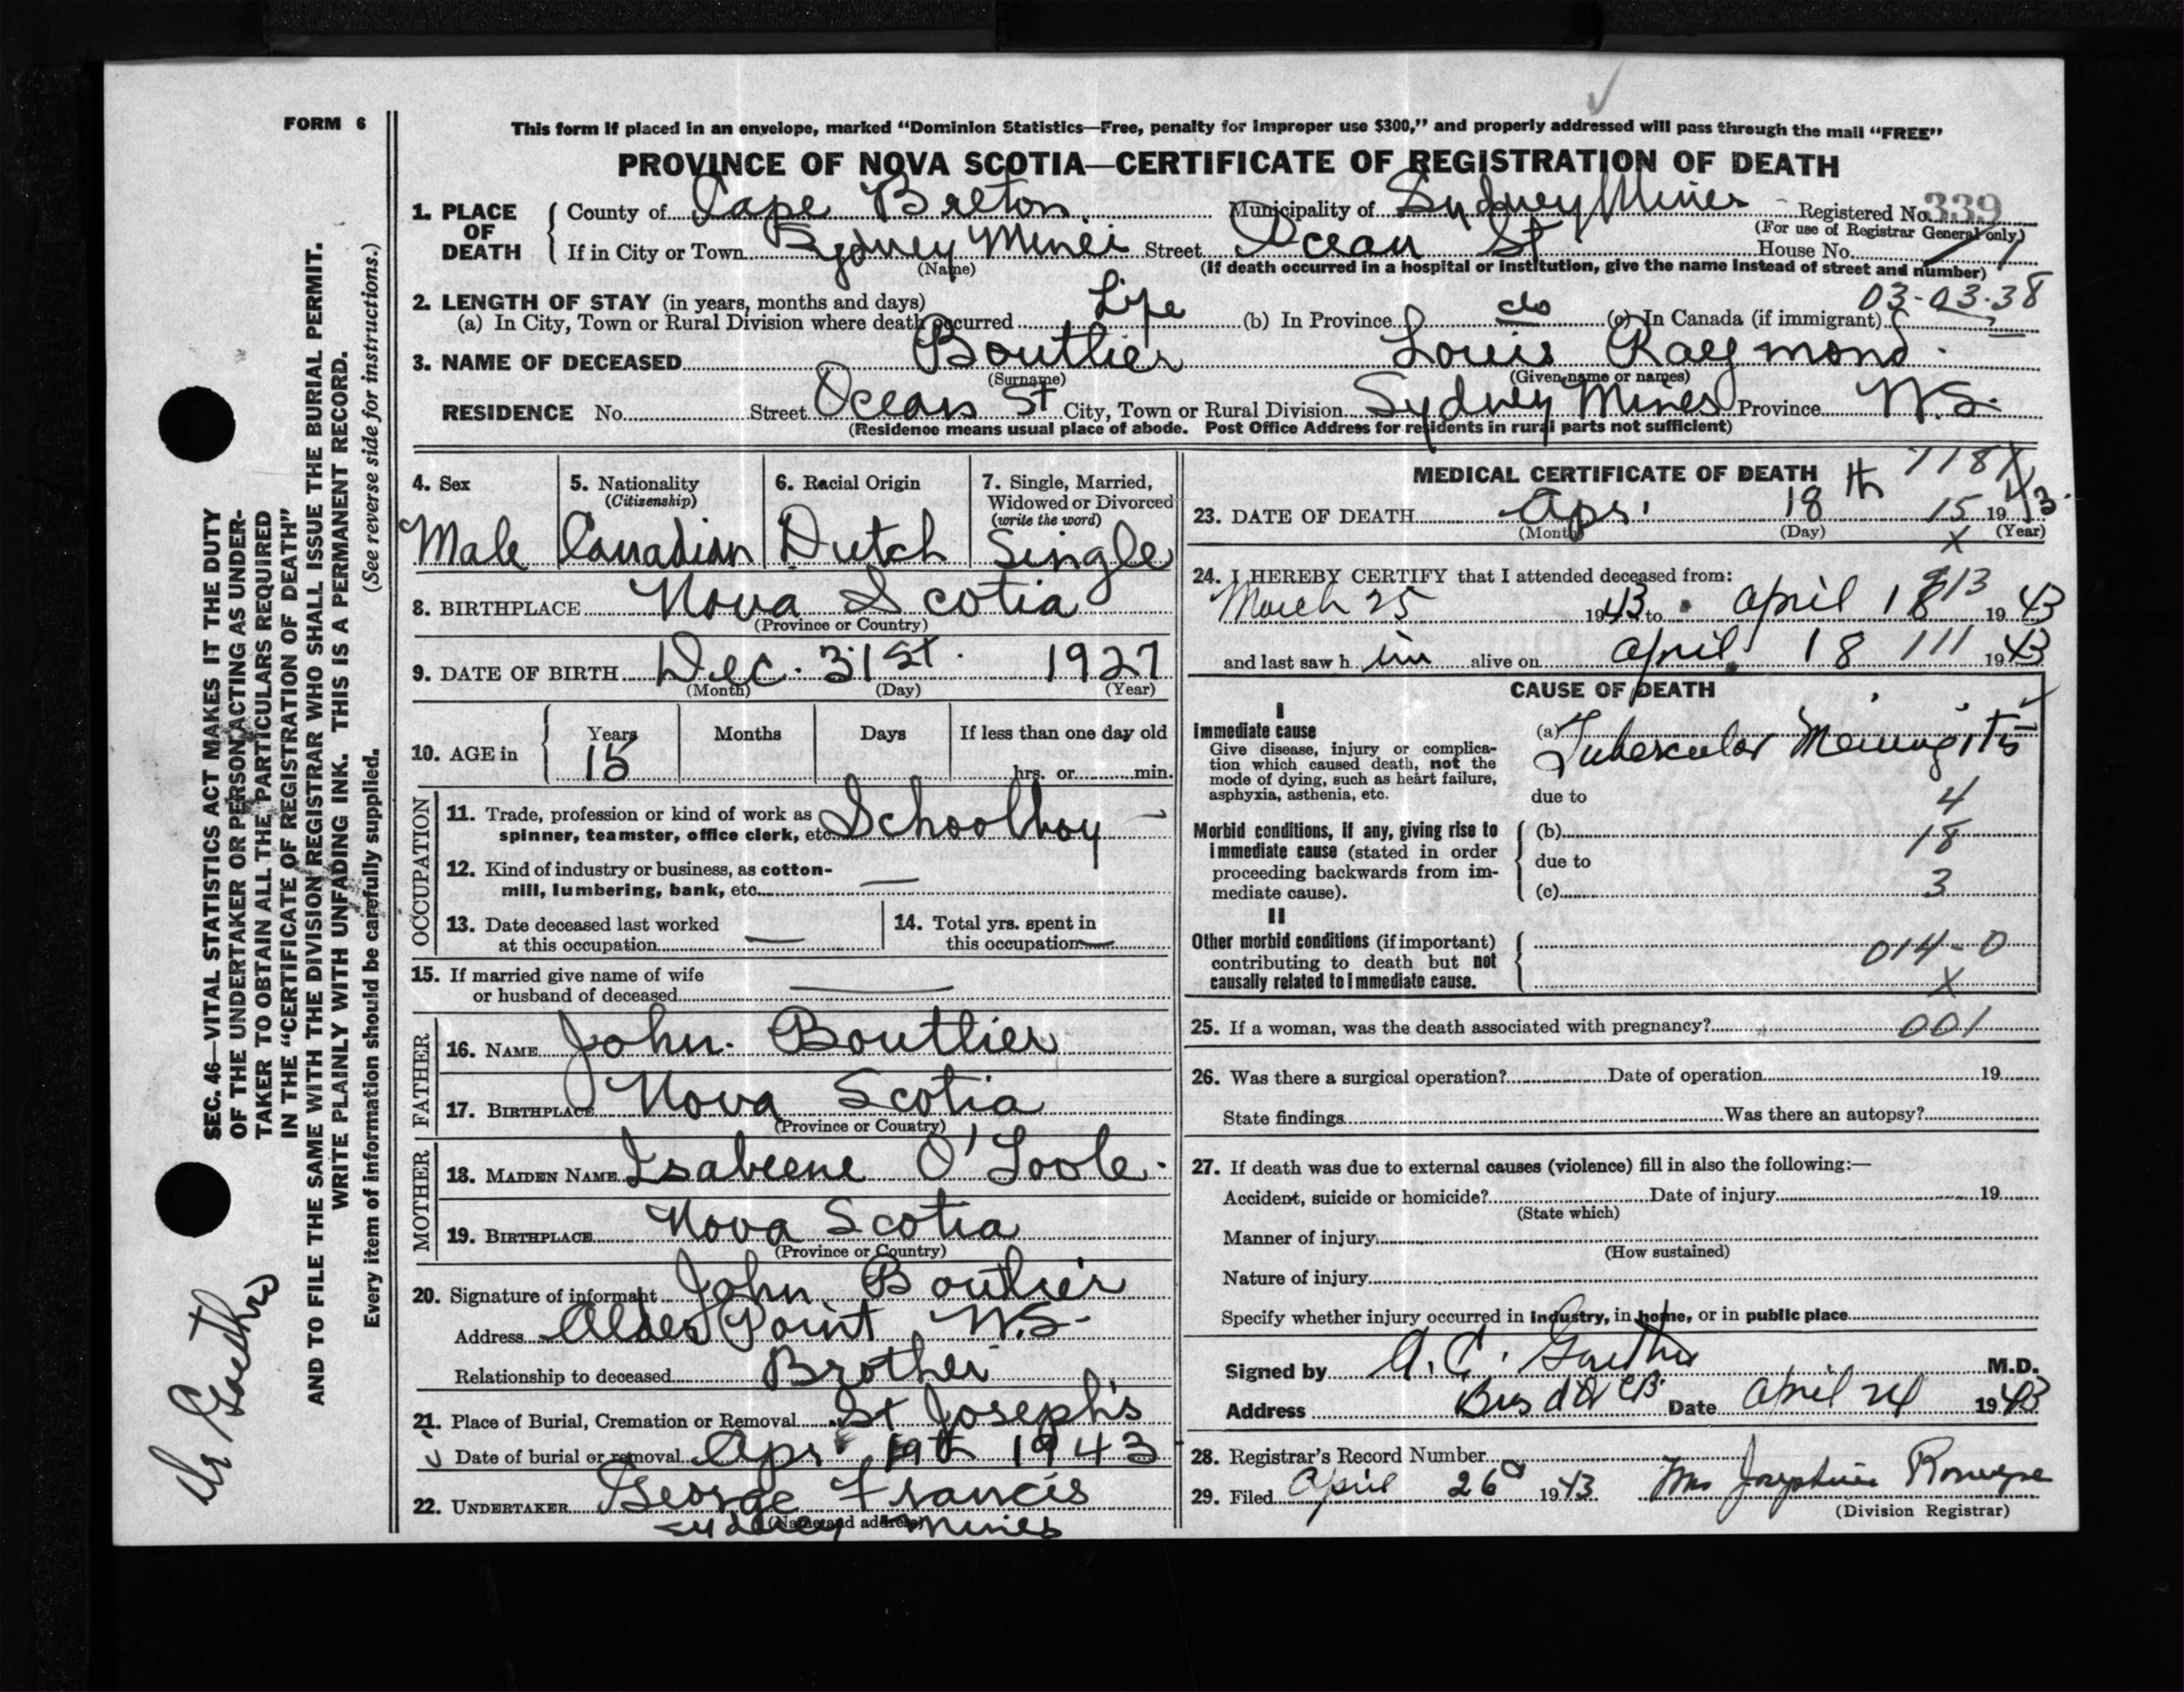 FORM 6
This form if placed in an envelope, marked "Dominion Statistics—Free, penalty for improper use $300," and properly addressed will pass through the mail "FREE"
PROVINCE OF NOVA SCOTIA—CERTIFICATE OF REGISTRATION OF DEATH
1. PLACE OF DEATH { County of Cape Breton. Municipality of Sydney Mines Registered No. 339
(For use of Registrar General only)
If in City or Town Sydney Mines Street Ocean St House No.
(Name) (If death occurred in a hospital or institution, give the name instead of street and number)
03-03-38
2. LENGTH OF STAY (in years, months and days)
(a) In City, Town or Rural Division where death occurred Life (b) In Province do (c) In Canada (if immigrant)
3. NAME OF DECEASED Boutlier Louis Raymond.
(Surname) (Given name or names)
RESIDENCE No. Street Ocean St City, Town or Rural Division Sydney Mines Province N.S.
(Residence means usual place of abode. Post Office Address for residents in rural parts not sufficient)
4. Sex 5. Nationality (Citizenship) 6. Racial Origin 7. Single, Married, Widowed or Divorced (write the word)
Male Canadian Dutch Single
8. BIRTHPLACE Nova Scotia
(Province or Country)
9. DATE OF BIRTH Dec. 31st. 1927
(Month) (Day) (Year)
10. AGE in { Years Months Days If less than one day old
15 hrs. or min.
OCCUPATION
11. Trade, profession or kind of work as spinner, teamster, office clerk, etc. Schoolboy —
12. Kind of industry or business, as cotton-mill, lumbering, bank, etc. —
13. Date deceased last worked at this occupation — 14. Total yrs. spent in this occupation —
15. If married give name of wife or husband of deceased —
FATHER
16. NAME John. Boutlier
17. BIRTHPLACE Nova Scotia
(Province or Country)
MOTHER
18. MAIDEN NAME Isabeene O'Toole.
19. BIRTHPLACE Nova Scotia
(Province or Country)
20. Signature of informant John Boutlier
Address Alder Point N.S.
Relationship to deceased Brother
21. Place of Burial, Cremation or Removal St Joseph's
Date of burial or removal Apr 19th 1943
22. UNDERTAKER George Francis
(Name and address)
Sydney Mines
MEDICAL CERTIFICATE OF DEATH
23. DATE OF DEATH Apr. 18th 15 1943.
(Month) (Day) (Year)
X
24. I HEREBY CERTIFY that I attended deceased from:
March 25 1943 to April 18 1943
and last saw h im alive on April 18 111 1943
CAUSE OF DEATH
I
Immediate cause
Give disease, injury or complication which caused death, not the mode of dying, such as heart failure, asphyxia, asthenia, etc.
(a) Tubercular Meningitis
due to 4
Morbid conditions, if any, giving rise to immediate cause (stated in order proceeding backwards from immediate cause).
(b) 18
due to
(c) 3
II
Other morbid conditions (if important) contributing to death but not causally related to immediate cause.
014-0
X
25. If a woman, was the death associated with pregnancy? 001
26. Was there a surgical operation? Date of operation 19
State findings Was there an autopsy?
27. If death was due to external causes (violence) fill in also the following:—
Accident, suicide or homicide? Date of injury 19
(State which)
Manner of injury
(How sustained)
Nature of injury
Specify whether injury occurred in industry, in home, or in public place
Signed by A. C. Gouthro M.D.
Address Date April 24 1943
28. Registrar's Record Number
29. Filed April 26 1943 Mrs Josephine
(Division Registrar)
SEC. 46—VITAL STATISTICS ACT MAKES IT THE DUTY
OF THE UNDERTAKER OR PERSON ACTING AS UNDER-
TAKER TO OBTAIN ALL THE PARTICULARS REQUIRED
IN THE "CERTIFICATE OF REGISTRATION OF DEATH"
AND TO FILE THE SAME WITH THE DIVISION REGISTRAR WHO SHALL ISSUE THE BURIAL PERMIT.
WRITE PLAINLY WITH UNFADING INK. THIS IS A PERMANENT RECORD.
Every item of information should be carefully supplied. (See reverse side for instructions.)
Dr Gouthro